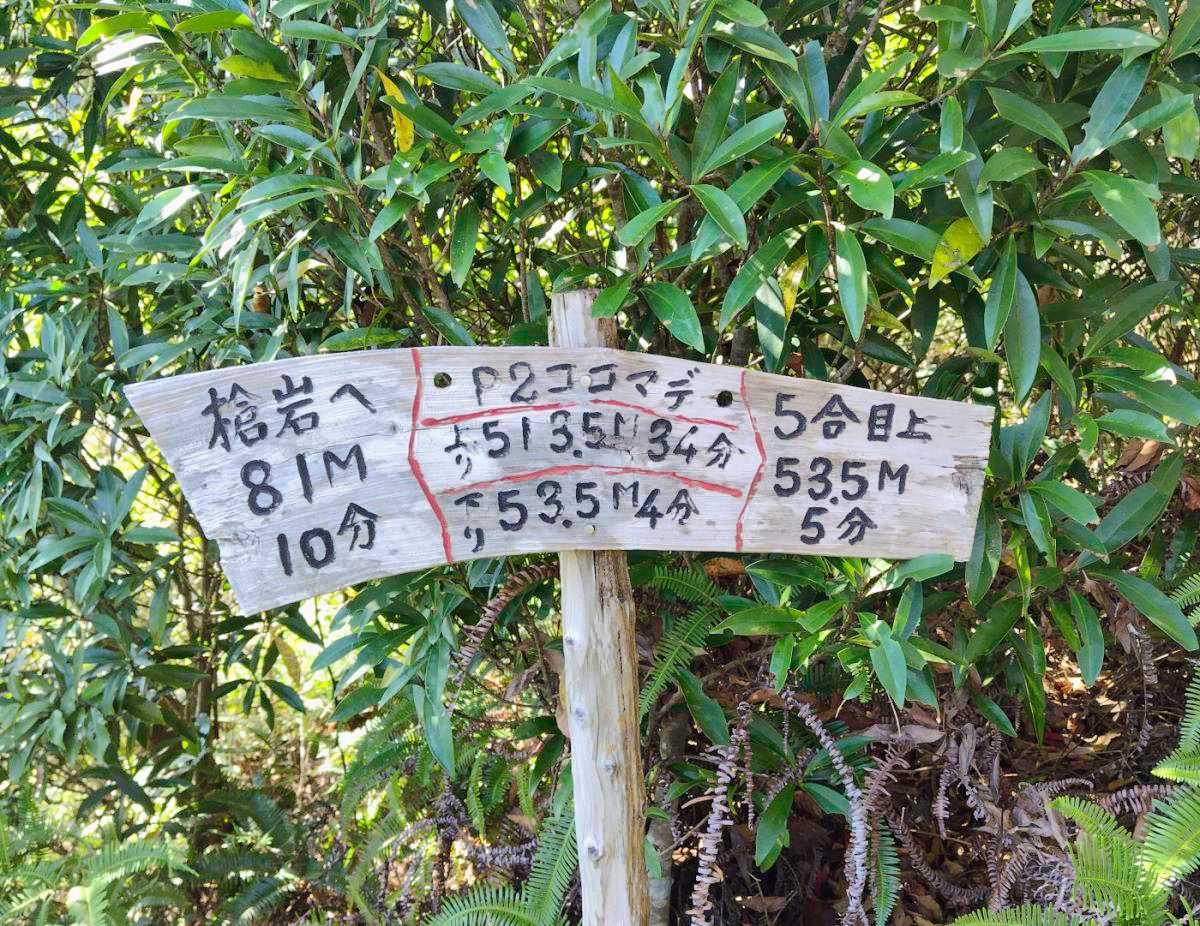 槍岩へ
81M
10分
P2ココマデ
上り513.5M34分
下り53.5M4分
5合目上
53.5M
5分